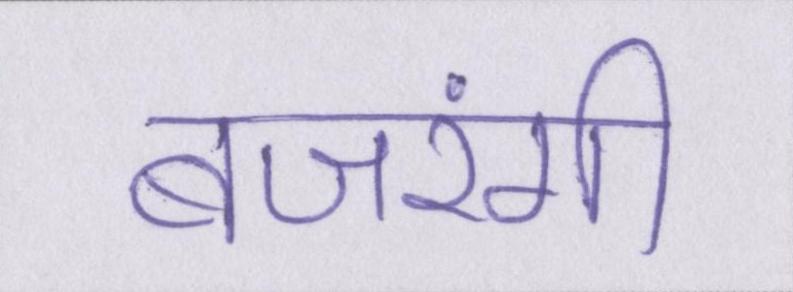 बजरंगी